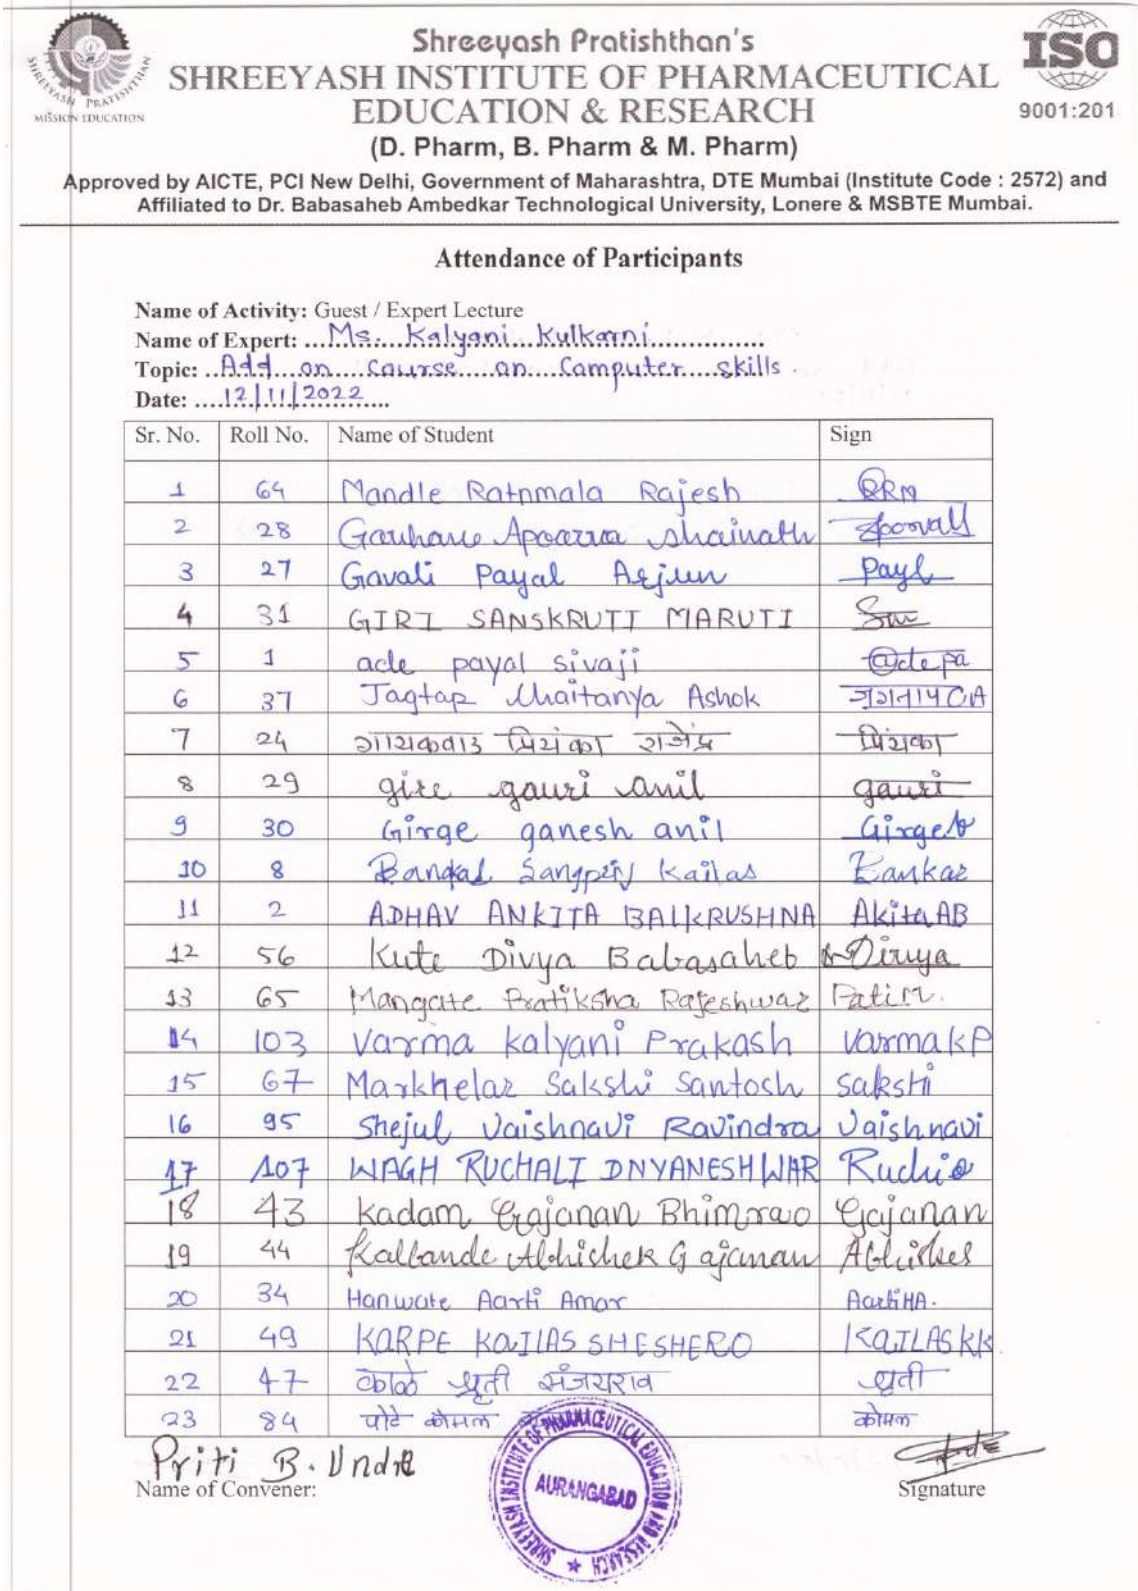 SHREEYASH PRATISHTHAN
MISSION EDUCATION
Shreeyash Pratishthan's
SHREEYASH INSTITUTE OF PHARMACEUTICAL
EDUCATION & RESEARCH
(D. Pharm, B. Pharm & M. Pharm)
ISO
9001:201
Approved by AICTE, PCI New Delhi, Government of Maharashtra, DTE Mumbai (Institute Code : 2572) and
Affiliated to Dr. Babasaheb Ambedkar Technological University, Lonere & MSBTE Mumbai.
Attendance of Participants
Name of Activity: Guest / Expert Lecture
Name of Expert: Ms. Kalyani Kulkarni
Topic: Add on Course on Computer skills.
Date: 12/11/2022
Sr. No. Roll No. Name of Student Sign
1 64 Mandle Ratnmala Rajesh RRM
2 28 Gavhane
3 27 Gavali Payal Arjun Payl
4 31 GIRI SANSKRUTI MARUTI
5 1 ade payal sivaji
6 37 Jagtap Chaitanya Ashok जगताप C.A
7 24 गायकवाड प्रियंका राजेंद्र प्रियंका
8 29 gire gauri anil gauri
9 30 Girge ganesh anil
10 8 Kailas
11 2 ADHAV ANKITA BALKRUSHNA AkitaAB
12 56 Kute Divya Babasaheb
13 65 Mangate Pratiksha Rajeshwar
14 103 Varma kalyani Prakash Varma k P
15 67 Markhelar Sakshi Santosh Sakshi
16 95 Shejul Vaishnavi Ravindra Vaishnavi
17 107 WAGH RUCHALI DNYANESHWAR
18 43 Kadam Gajanan Bhimrao Gajanan
19 44 Kallande Abhichek Gajanan
20 34 Hanwate Aarti Amar Aarti HA.
21 49 KARPE KAILAS SHESHERO KAILAS KK
22 47 काळे श्रुती संजयराव श्रुती
23 84 पोटे कोमल कोमल
Priti B.
Name of Convener:
SHREEYASH INSTITUTE OF PHARMACEUTICAL EDUCATION AND RESEARCH
AURANGABAD
Signature